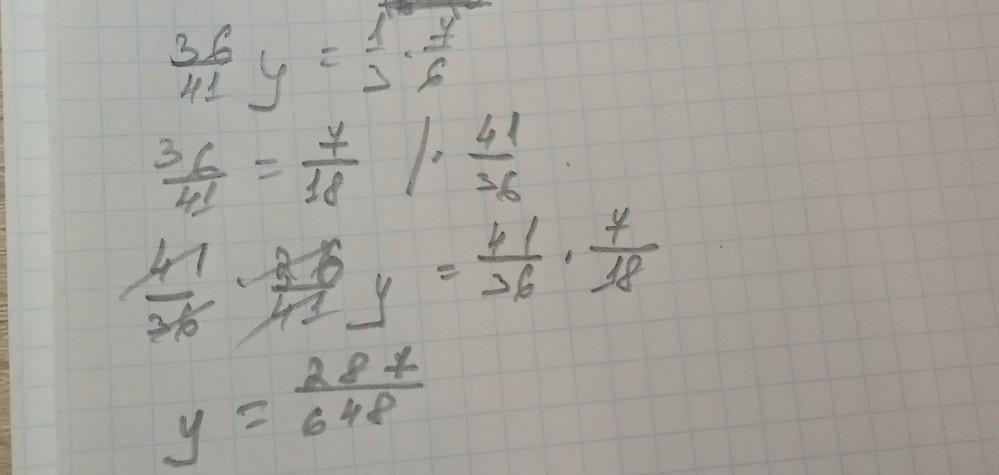 36/41 y = 1/3 · 7/6
36/41 = 7/18 /· 41/36
41/36 · 36/41 y = 41/36 · 7/18
y = 287/648